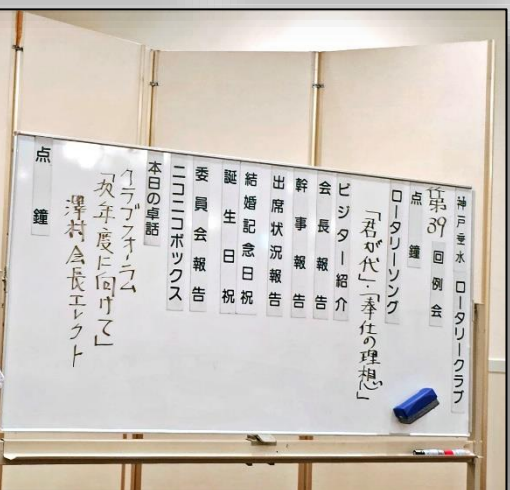 神戸垂水 ロータリークラブ
第39回例会
点鐘
ロータリーソング
「君が代」・「奉仕の理想」
ビジター紹介
会長報告
幹事報告
出席状況報告
結婚記念日祝
誕生日祝
委員会報告
ニコニコボックス
本日の卓話
クラブフォーラム
「次年度に向けて」
澤村会長エレクト
点鐘